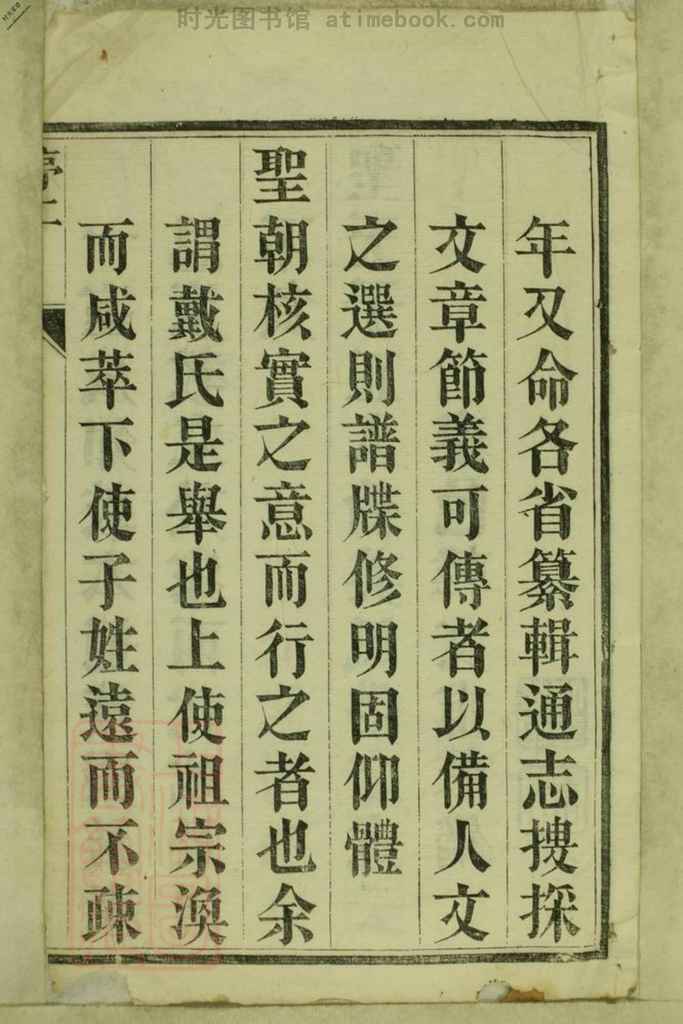 时光图书馆 atimebook.com
年又命各省纂輯通志搜採
文章節義可傳者以備人文
之選則譜牒修明固仰體
聖朝核實之意而行之者也余
謂戴氏是舉也上使祖宗渙
而咸萃下使子姓遠而不疎